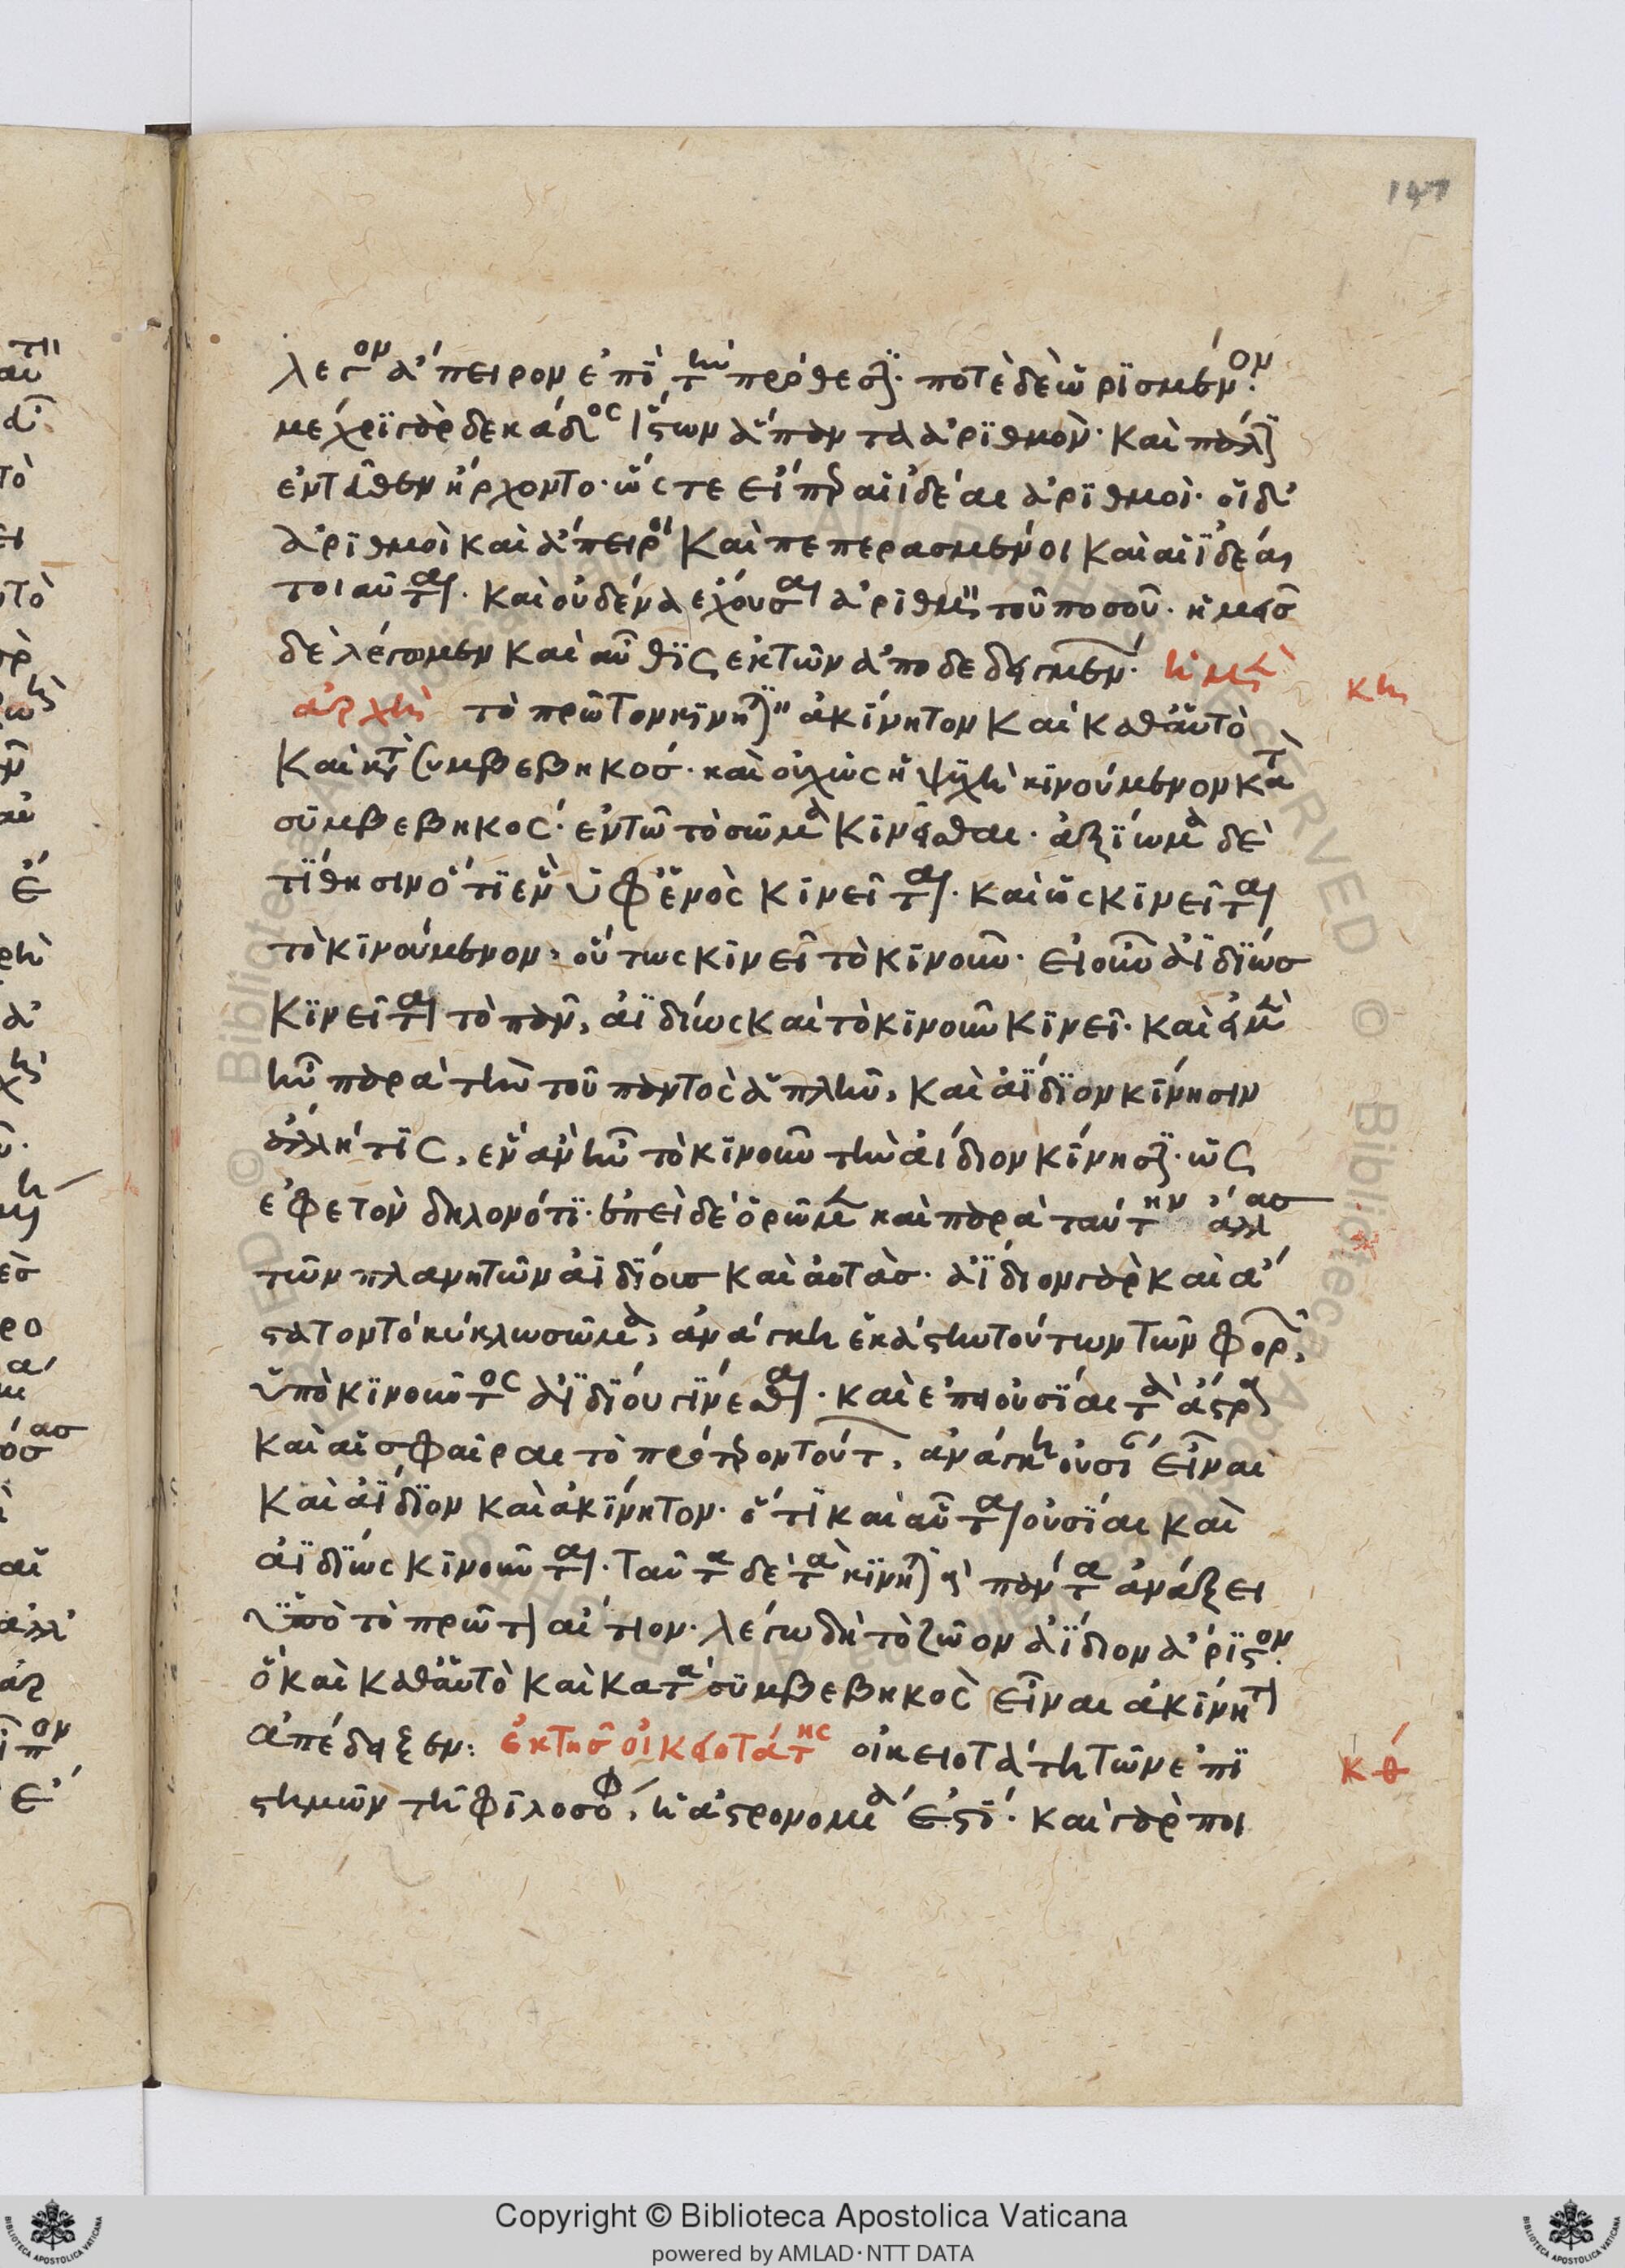 147
λεγον ἄπειρον ἐπὶ τὴν πρόσθεσιν· ποτὲ δὲ ὡρισμένον·
μέχρι γὰρ δεκάδος ἵστων ἅπαντα ἀριθμόν· καὶ πάλιν
ἐντεῦθεν ἤρχοντο· ὥστε εἴπερ αἱ ἰδέαι ἀριθμοί· οἱ δ'
ἀριθμοὶ καὶ ἄπειροι καὶ πεπερασμένοι καὶ αἱ ἰδέαι
τοιαῦται· καὶ οὐδένα ἔχουσαι ἀριθμὸν τοῦ ποσοῦ· ἡμεῖς
δὲ λέγωμεν καὶ αὖθις ἐκ τῶν ἀποδεδειγμένων· ἡ μὲν
ἀρχὴ τὸ πρῶτον κινητικὸν ἀκίνητον καὶ καθ' αὑτὸ
κη
καὶ κατὰ συμβεβηκός· καὶ οὐχ ὡς ἡ ψυχὴ κινούμενον κατὰ
συμβεβηκός· ἐν τῷ τὸ σῶμα κινεῖσθαι· ἀξίωμα δὲ
τίθησιν ὅτι ἓν ὑφ' ἑνὸς κινεῖται· καὶ ὡς κινεῖται
τὸ κινούμενον, οὕτως κινεῖ τὸ κινοῦν· εἰ οὖν ἀϊδίως
κινεῖται τὸ πᾶν, ἀϊδίως καὶ τὸ κινοῦν κινεῖ· καὶ εἰ μὲν
ἦν παρὰ τὴν τοῦ παντὸς ἁπλῆν, καὶ ἀΐδιον κίνησιν
ἄλλη τις, ἓν ἂν ἦν τὸ κινοῦν τὴν ἀΐδιον κίνησιν· ὡς
ἐφετὸν δηλονότι· ἐπεὶ δὲ ὁρῶμεν καὶ παρὰ ταύτην ἄλλας
τῶν πλανητῶν ἀϊδίους καὶ αὐτάς· ἀΐδιον γὰρ καὶ ἄ
στατον τὸ κύκλω σῶμα, ἀνάγκη ἑκάστην τούτων τῶν φορῶν,
ὑπὸ κινοῦντος ἀϊδίου γίνεσθαι· καὶ ἐπεὶ οὐσίαι τὰ ἄστρα
καὶ αἱ σφαῖραι τὸ πρότερον τούτων, ἀνάγκη οὐσίαν εἶναι
καὶ ἀΐδιον καὶ ἀκίνητον· ὅτι καὶ αὗται οὐσίαι καὶ
ἀϊδίως κινοῦνται· ταῦτα δὲ τὰ κινητικὰ πάντα ἀνάξει
ὑπὸ τὸ πρῶτον αἴτιον· λέγω δὴ τὸ ζῶον ἀΐδιον ἄριστον·
ὃ καὶ καθ' αὑτὸ καὶ κατὰ συμβεβηκὸς εἶναι ἀκίνητον
ἀπέδειξεν: ἐκ τῆς οἰκειοτάτης οἰκειοτάτη τῶν ἐπι
κθ
στημῶν τῆ φιλοσοφία, ἡ ἀστρονομία ἐστί· καὶ γὰρ ποι
Copyright © Biblioteca Apostolica Vaticana
powered by AMLAD·NTT DATA